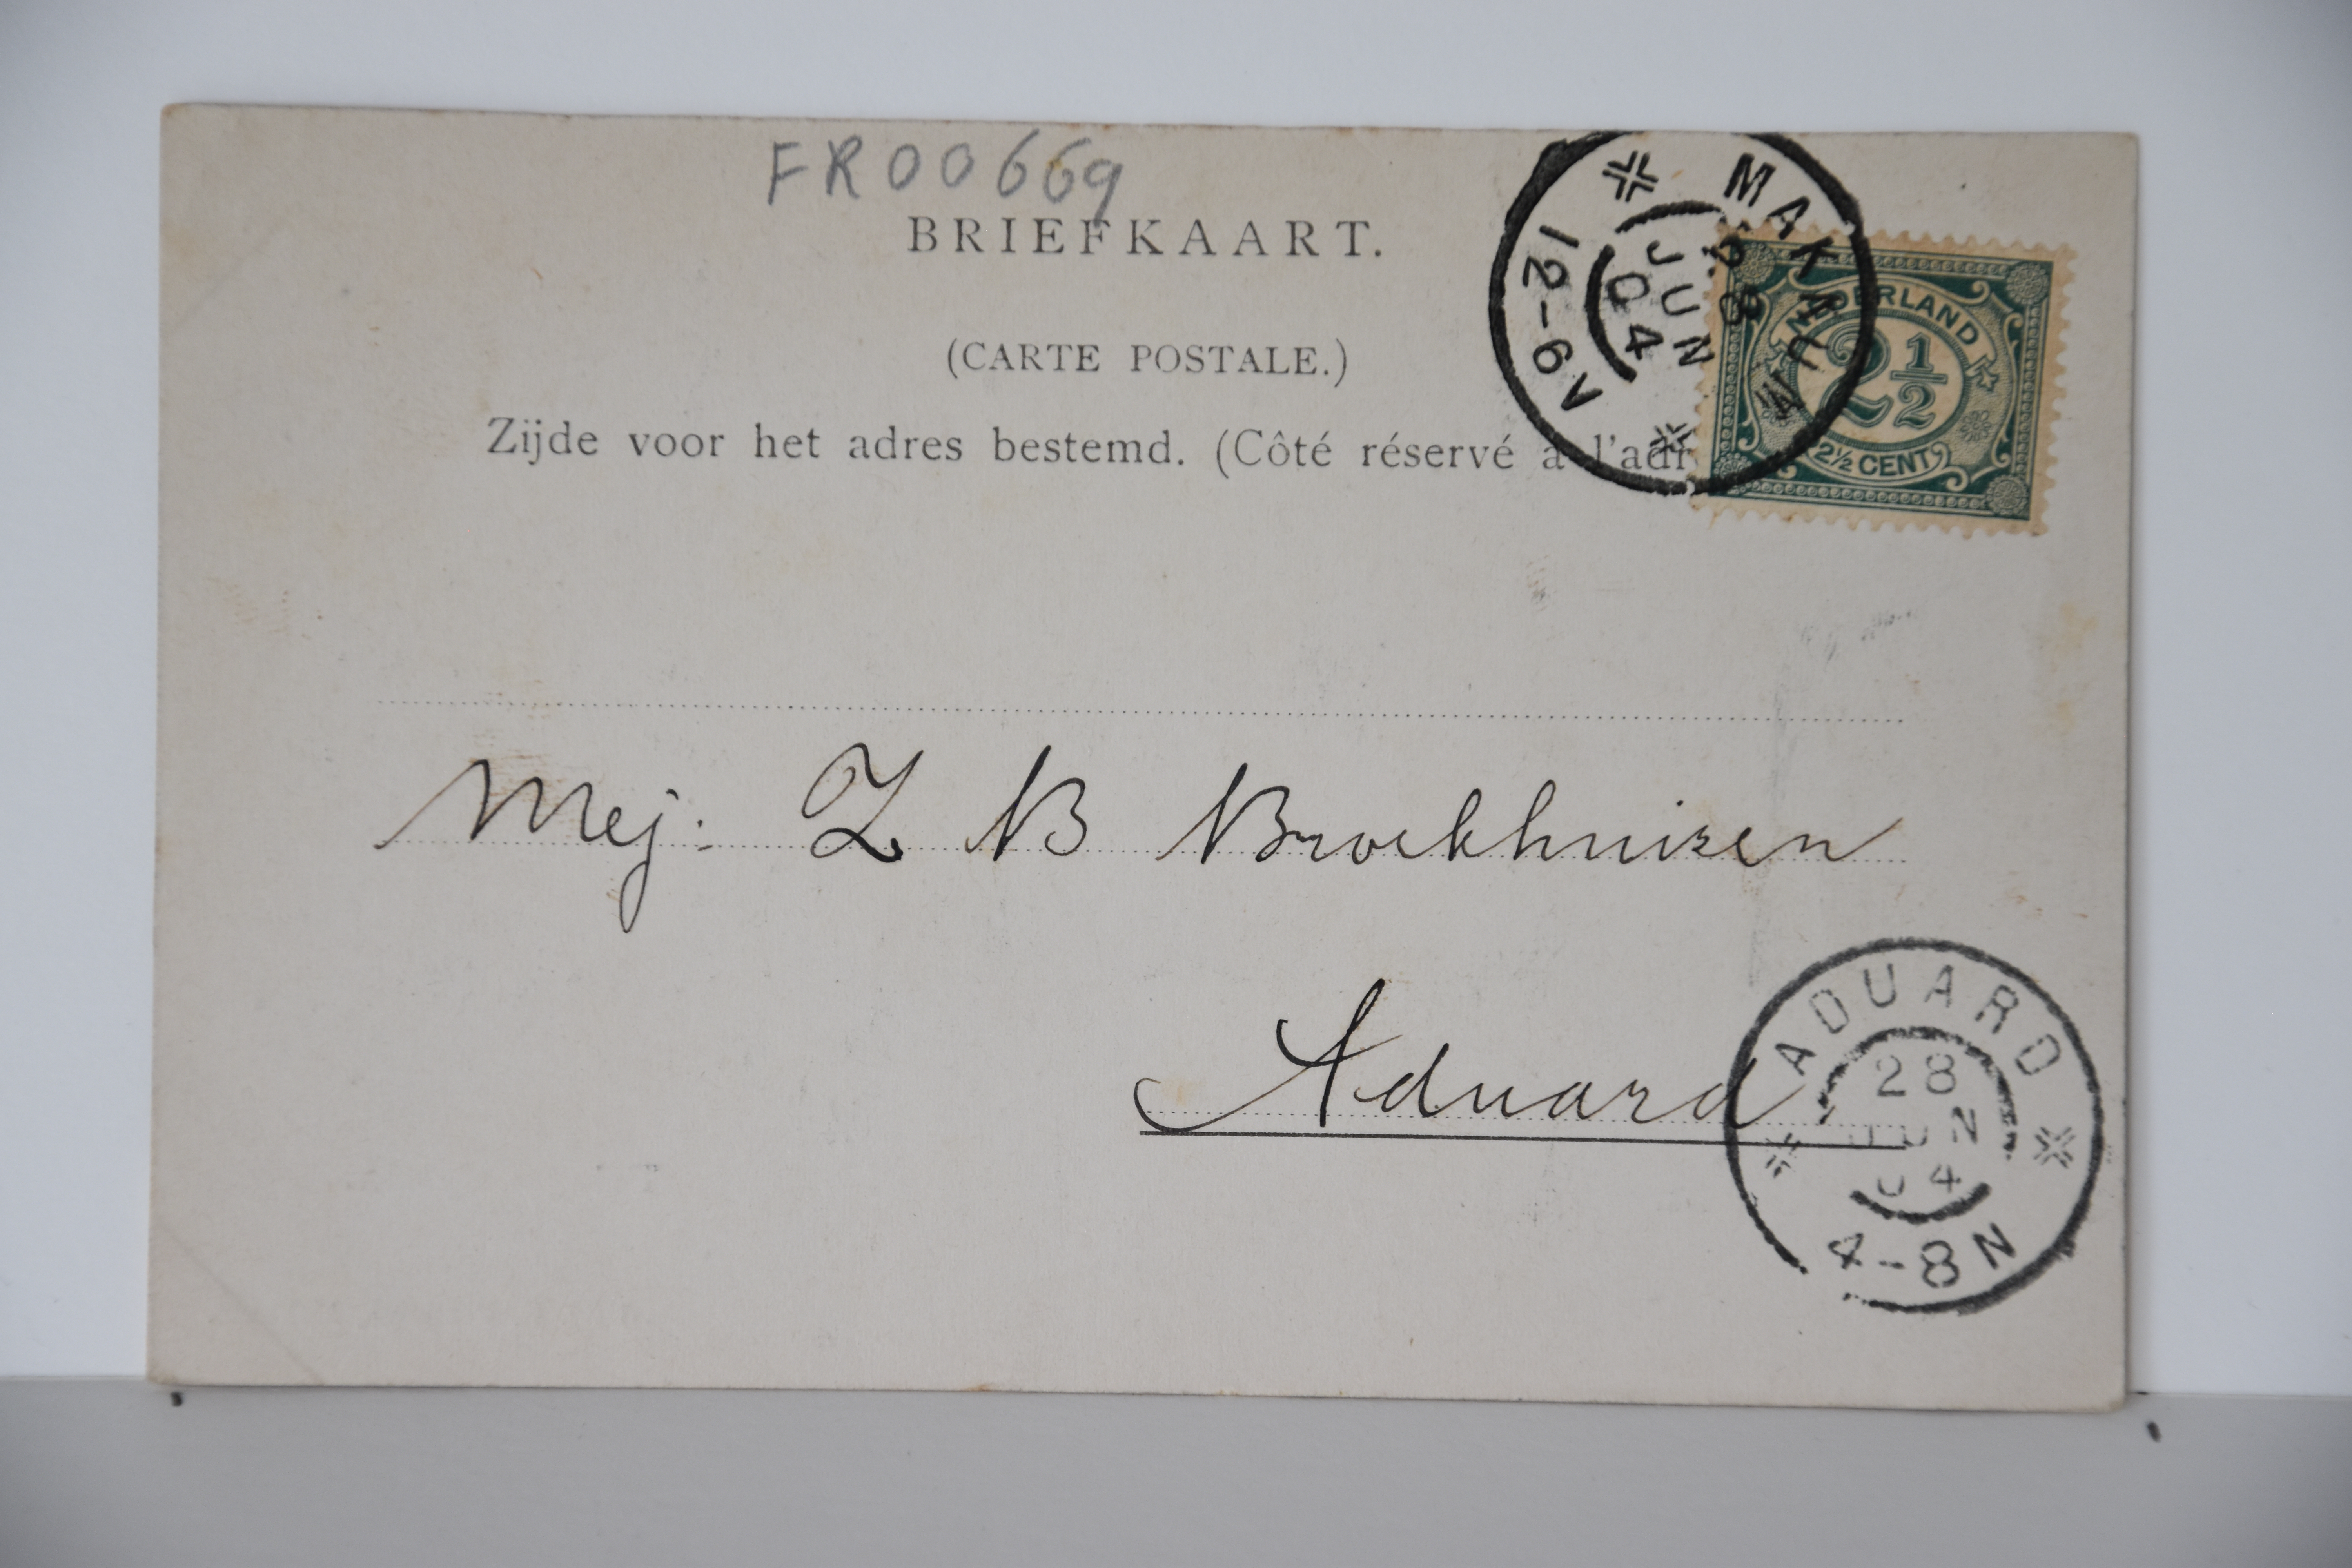 FR00669
BRIEFKAART.
(CARTE POSTALE.)
Zijde voor het adres bestemd. (Côté réservé à l'adr
MAKKUM
28
JUN
04
12-6V
NEDERLAND
2 1/2
2½ CENT
Mej: Z B Broekhuizen
Aduard
ADUARD
28
JUN
04
4-8N